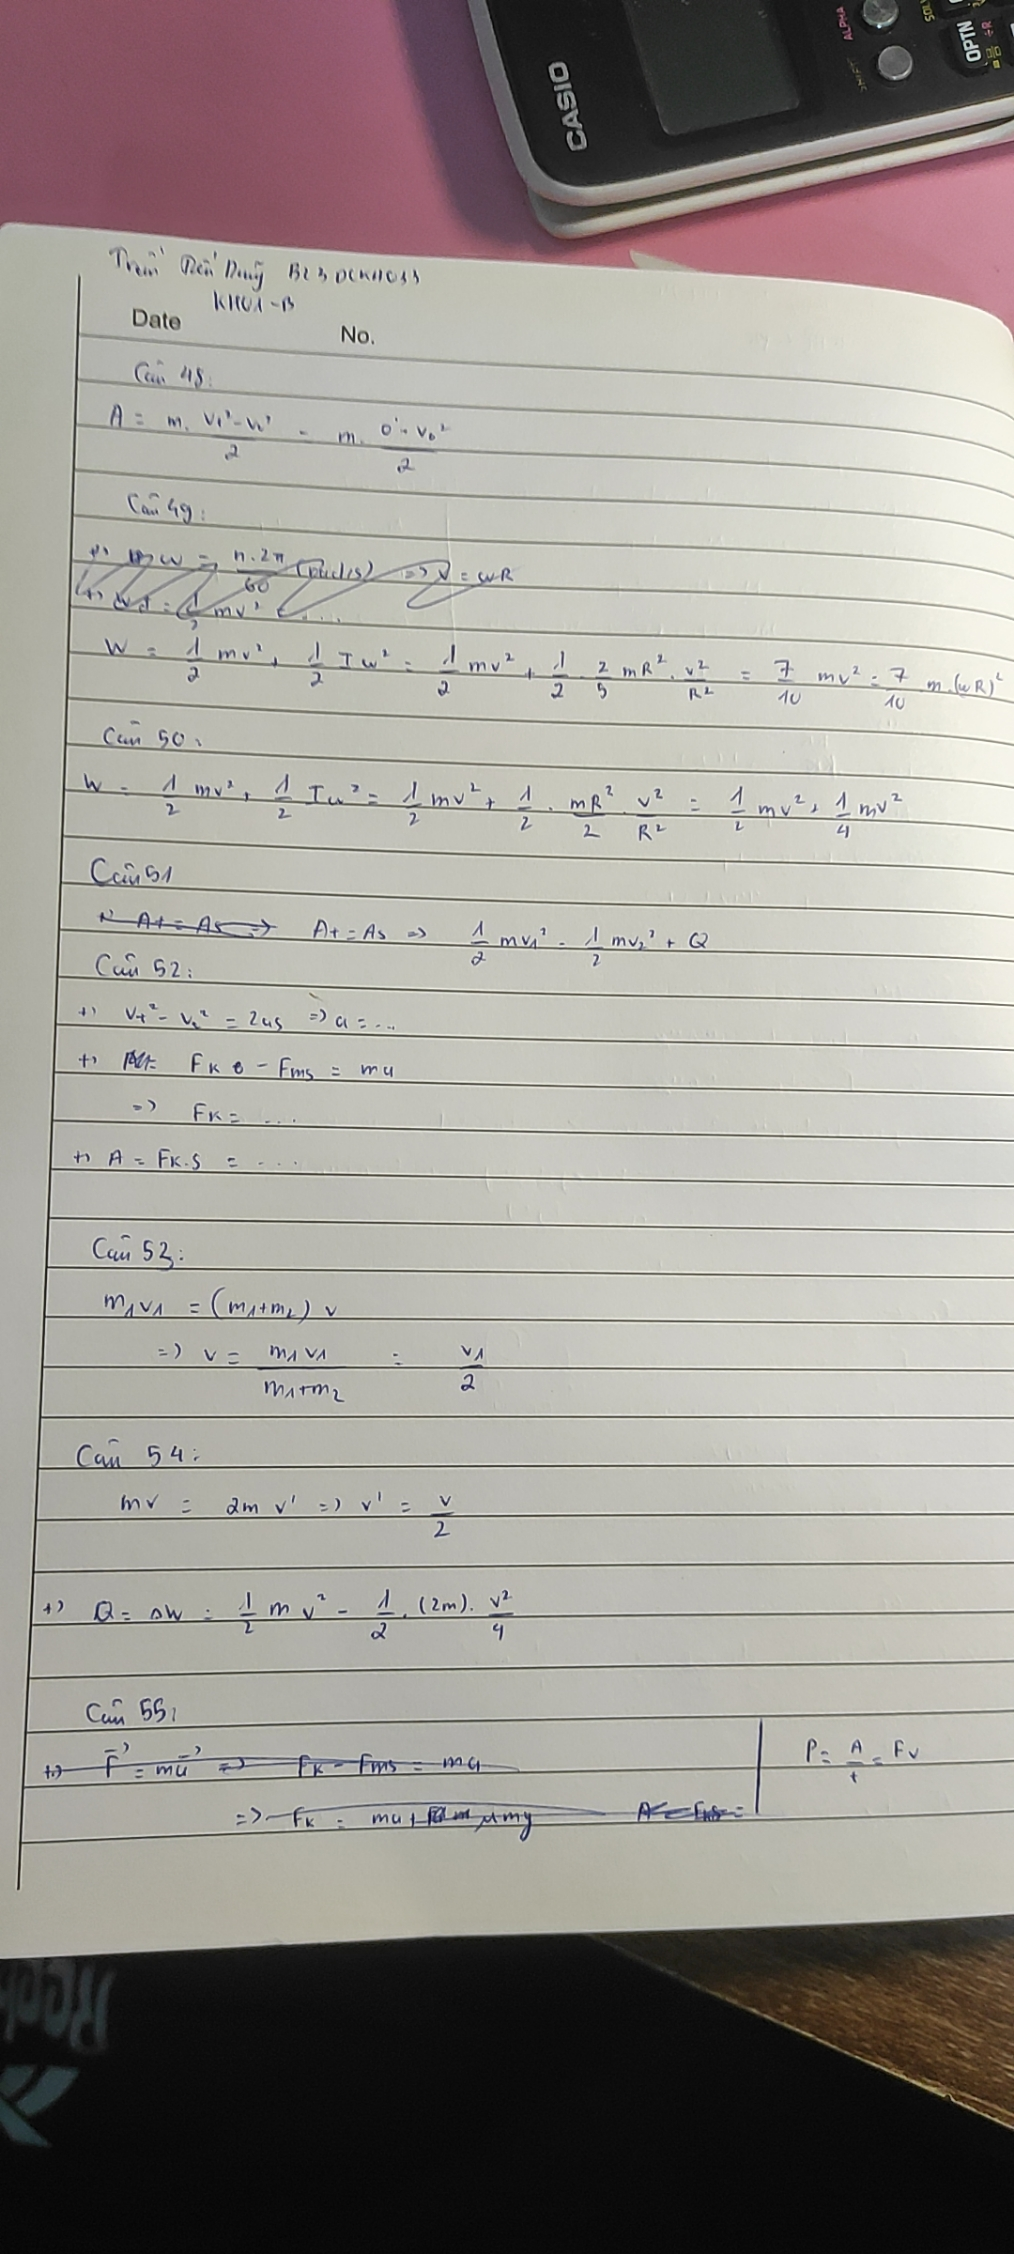 CASIO
ALPHA
OPTN
Trần Tiến Dũng B23DCKH033
KH01-B
Date No.
Câu 48:
A = m. (v₁² - v₀²)/2 = m. (0² - v₀²)/2
Câu 49:
W = 1/2 mv² + 1/2 Iω² = 1/2 mv² + 1/2 . 2/5 mR² . v²/R² = 7/10 mv² = 7/10 m.(ωR)²
Câu 50:
W = 1/2 mv² + 1/2 Iω² = 1/2 mv² + 1/2 . mR²/2 . v²/R² = 1/2 mv² + 1/4 mv²
Câu 51
At = As => At = As => 1/2 mv₁² = 1/2 mv₂² + Q
Câu 52:
+) = 2as => a = ...
+) Fk - Fms = ma
=> Fk = ...
+) A = Fk.s = ...
Câu 53:
m₁v₁ = (m₁+m₂) v
=> v = m₁v₁/(m₁+m₂) = v₁/2
Câu 54:
mv = 2m v' => v' = v/2
+) Q = ΔW = 1/2 m v² - 1/2 . (2m). v²/4
Câu 55:
+) F = ma => Fk - Fms = ma
P = A/t = Fv
=> Fk = ma + μmg